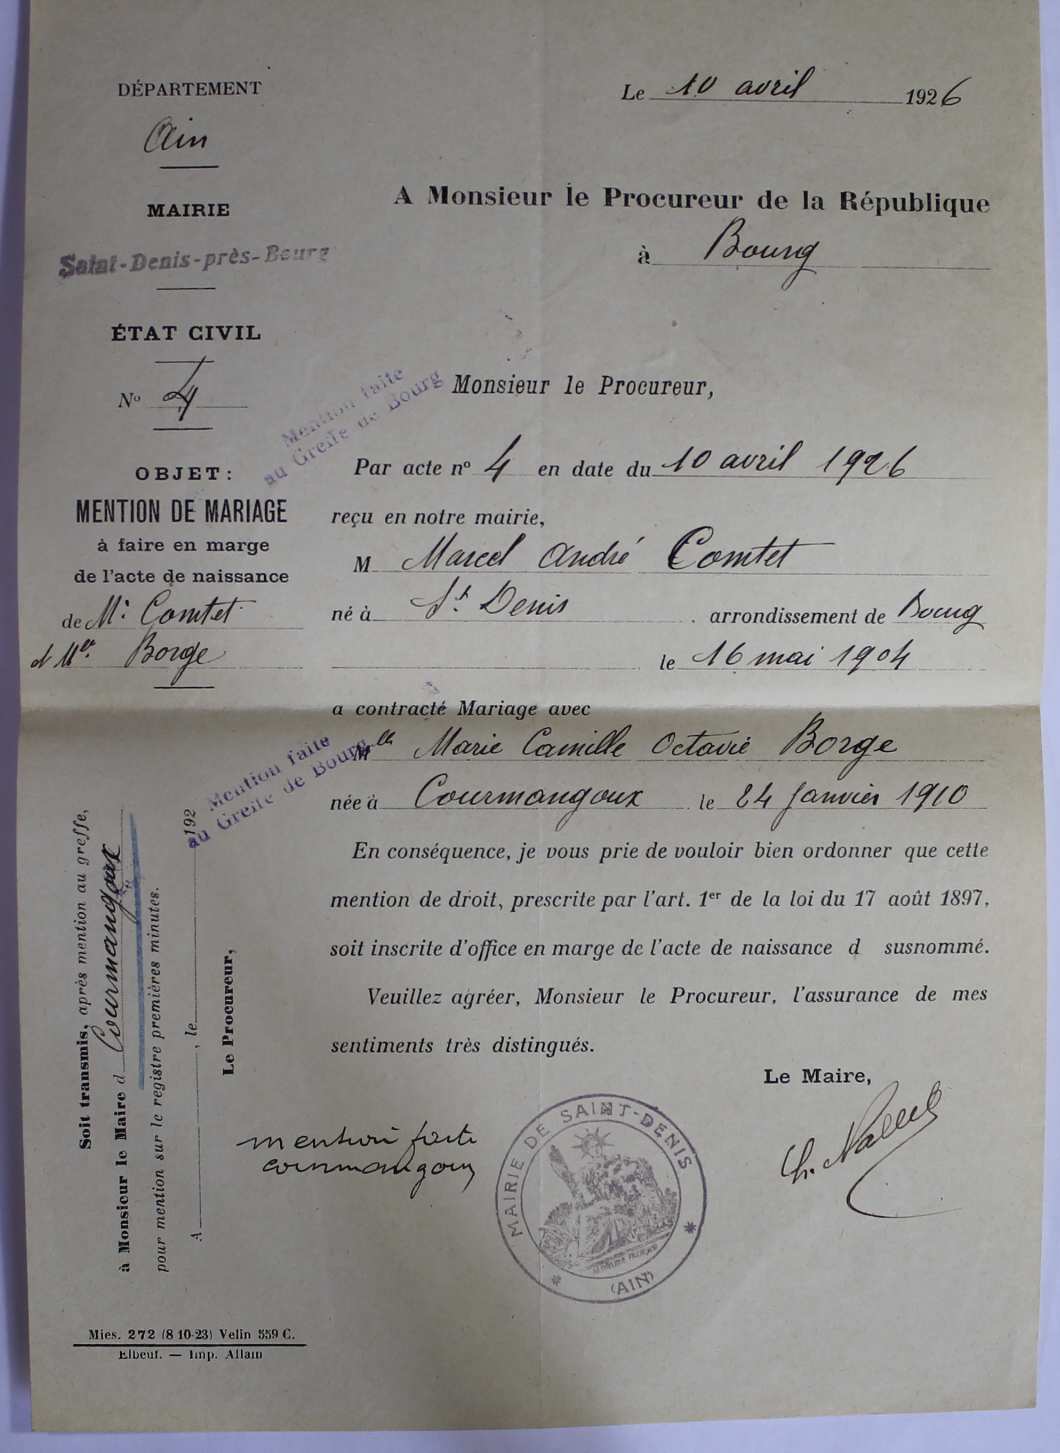 DÉPARTEMENT
Ain
MAIRIE
Saint-Denis-près-Bourg
ÉTAT CIVIL
No 4
OBJET:
MENTION DE MARIAGE
à faire en marge
de l'acte de naissance
de Mr Comtet
et Mlle Borge
Le 10 avril 1926
A Monsieur le Procureur de la République
à Bourg
Mention faite
au Greffe de Bourg
Monsieur le Procureur,
Par acte no 4 en date du 10 avril 1926
reçu en notre mairie,
M Marcel André Comtet
né à St Denis . arrondissement de Bourg
le 16 mai 1904
a contracté Mariage avec
Mlle Marie Camille Octavie Borge
née à Courmangoux le 24 Janvier 1910
Mention faite
au Greffe de Bourg
En conséquence, je vous prie de vouloir bien ordonner que cette
mention de droit, prescrite par l'art. 1er de la loi du 17 août 1897,
soit inscrite d'office en marge de l'acte de naissance d susnommé.
Veuillez agréer, Monsieur le Procureur, l'assurance de mes
sentiments très distingués.
Le Maire,
mention faite
courmangoux
MAIRIE DE SAINT-DENIS
(AIN)
Soit transmis, après mention au greffe,
à Monsieur le Maire d Courmangoux
pour mention sur le registre premières minutes.
A , le 192
Le Procureur,
Mies. 272 (8-10-23) Velin 559 C.
Elbeuf. — Imp. Allain